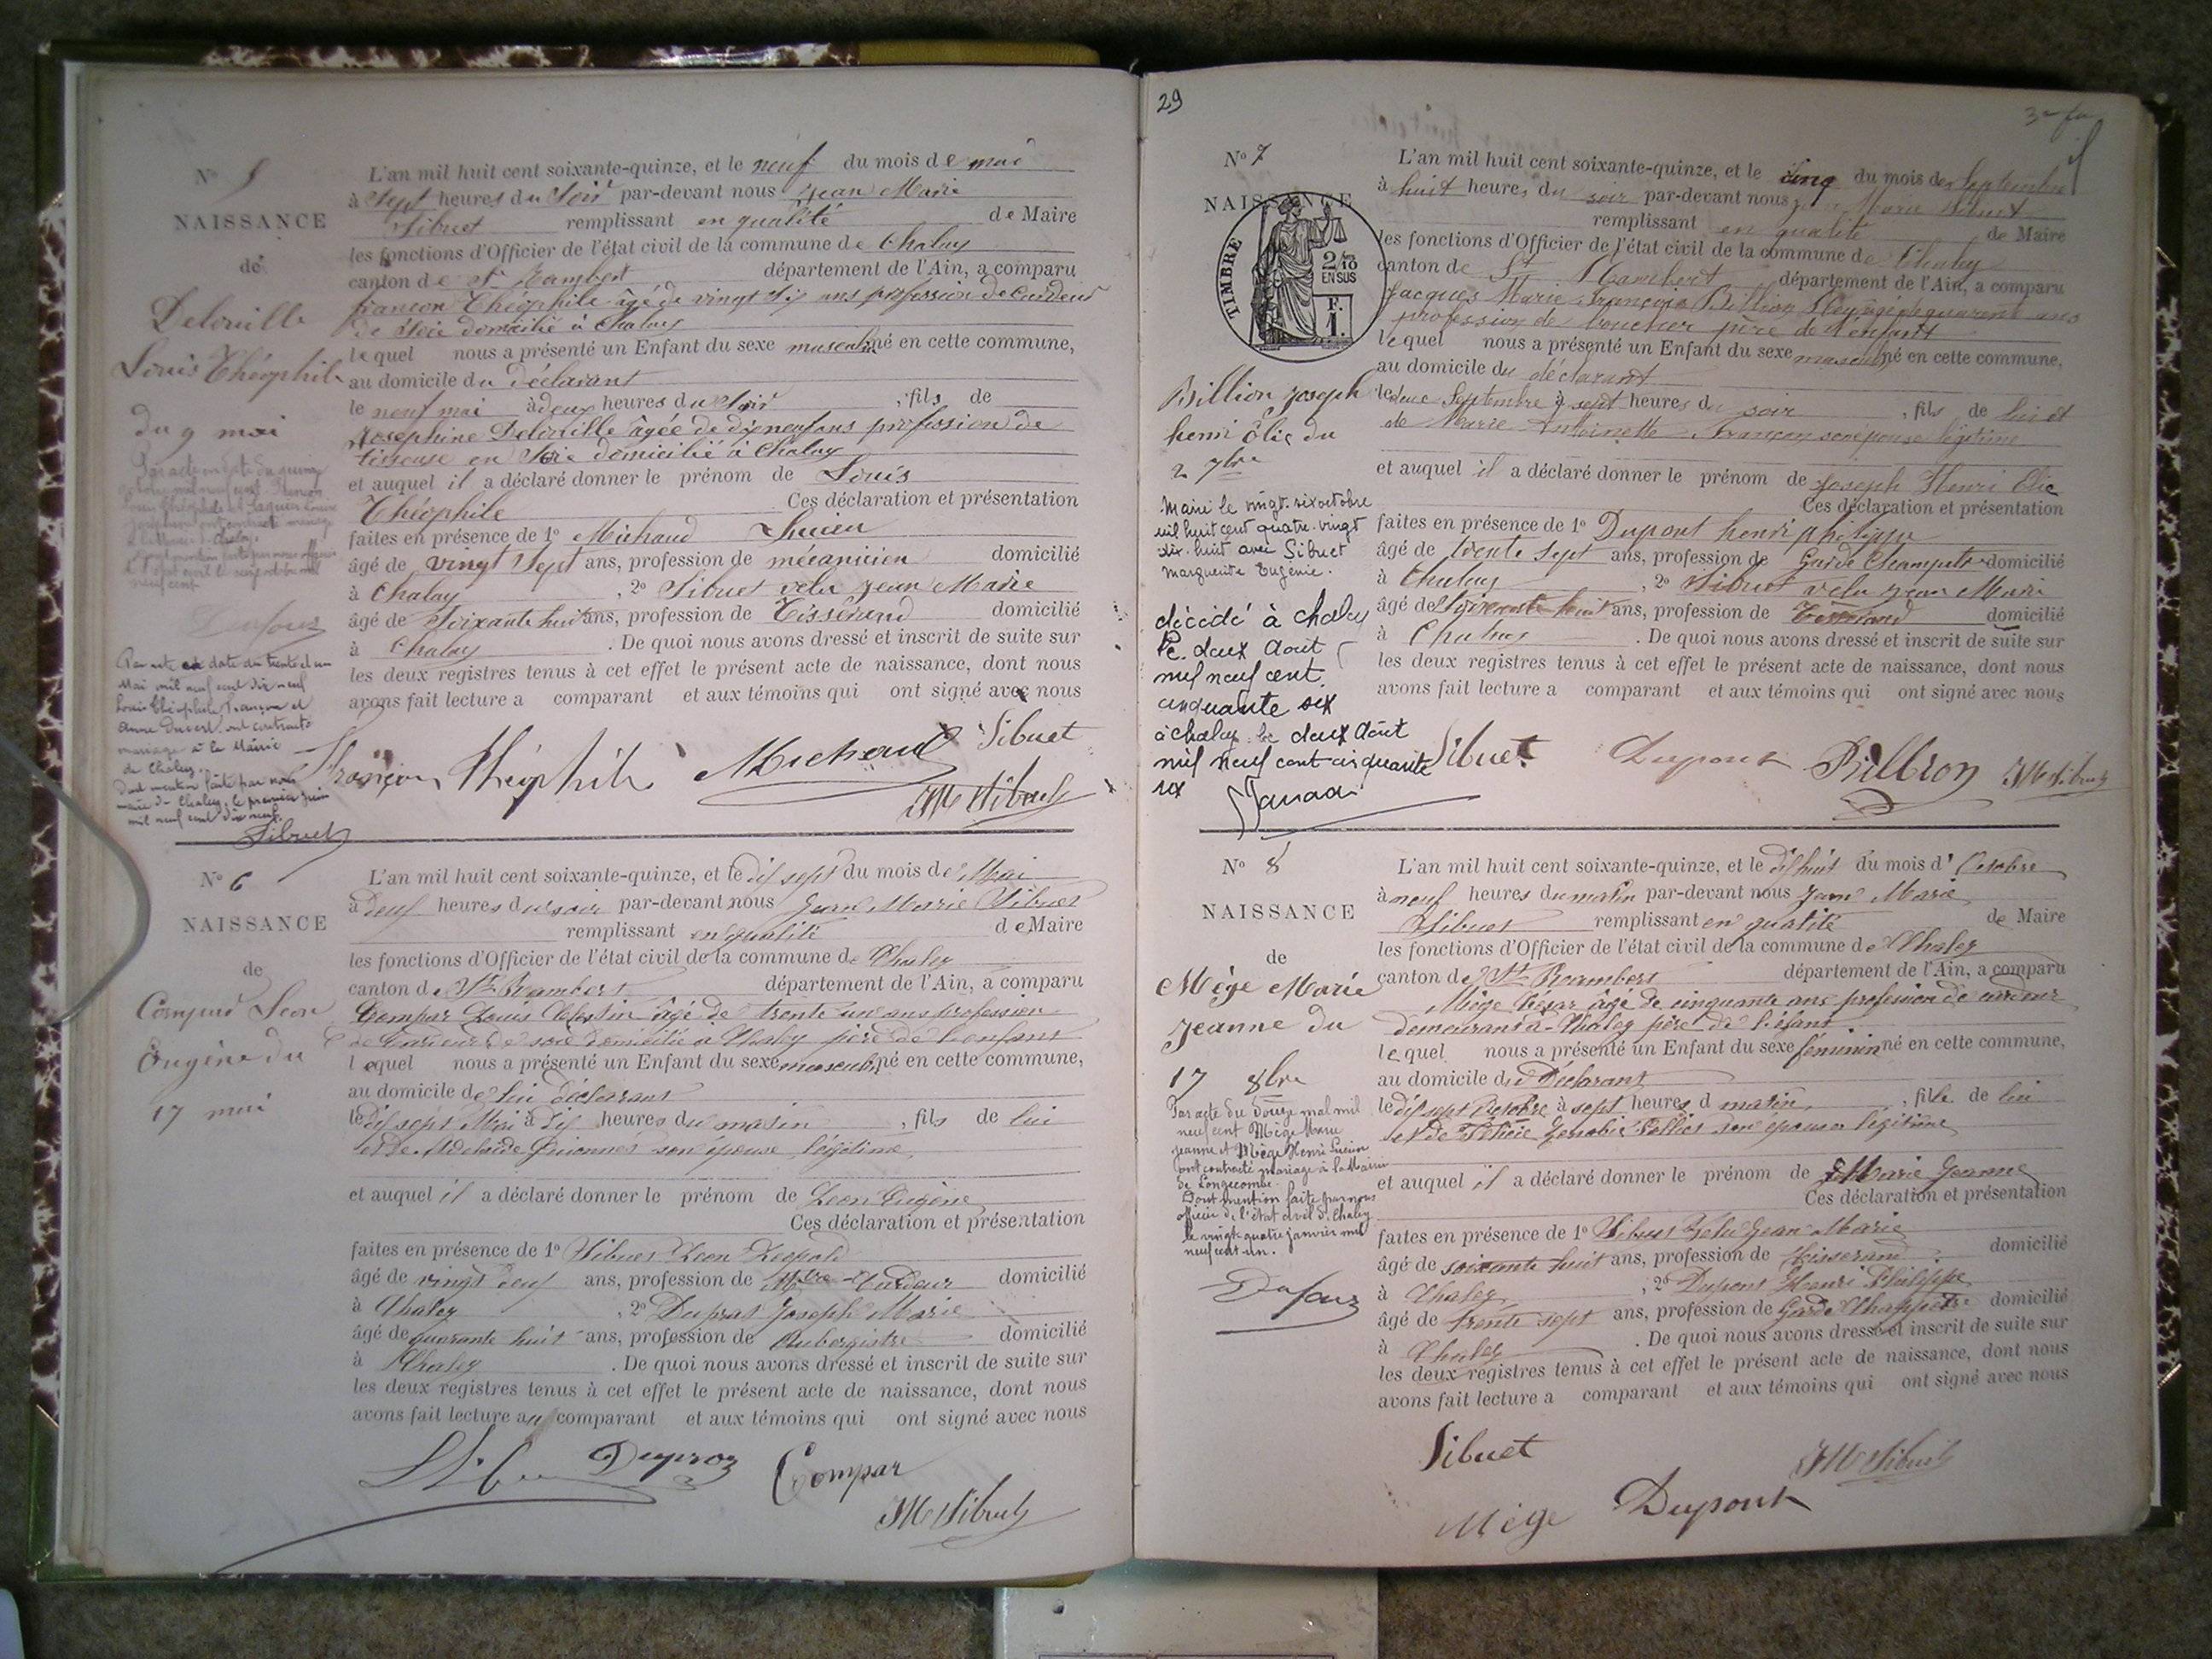 N° 5
NAISSANCE
de
Delorille
Louis Théophile
du 9 mai
Par acte en date du trente et un
Mai mil neuf cent dix neuf
Louis Théophile Françon et
Anne ont contracté
mariage à la Mairie
de Chaley.
Dont mention faite par nous
maire de Chaley, le premier juin
mil neuf cent dix neuf.
Sibuet
L'an mil huit cent soixante-quinze, et le neuf du mois de mai
à Sept heures du Soir par-devant nous Jean Marie
Sibuet remplissant en qualité de Maire
les fonctions d'Officier de l'état civil de la commune de Chaley
canton de St Rambert département de l'Ain, a comparu
françon Théophile âgé de vingt six ans profession de Cardeur
de Soie domicilié à Chaley
lequel nous a présenté un Enfant du sexe masculin né en cette commune,
au domicile du déclarant
le neuf mai à deux heures du Soir, fils de
Josephine Delorille âgée de dix neuf ans profession de
tisseuse en Soie domicilié à Chaley
et auquel il a déclaré donner le prénom de Louis
Théophile Ces déclaration et présentation
faites en présence de 1° Michaud
âgé de vingt Sept ans, profession de mécanicien domicilié
à Chaley, 2° Sibuet velu Jean Marie
âgé de Soixante huit ans, profession de Tisserand domicilié
à Chaley. De quoi nous avons dressé et inscrit de suite sur
les deux registres tenus à cet effet le présent acte de naissance, dont nous
avons fait lecture a comparant et aux témoins qui ont signé avec nous
Françon Théophile Michaud Sibuet
JM Sibuet
N° 6
NAISSANCE
de
Léon
Eugène du
17 mai
L'an mil huit cent soixante-quinze, et le dix sept du mois de Mai
à deux heures du soir par-devant nous Jean Marie Sibuet
remplissant en qualité de Maire
les fonctions d'Officier de l'état civil de la commune de Chaley
canton de St Rambert département de l'Ain, a comparu
Compar Louis âgé de trente un ans profession
de Cardeur de soie domicilié à Chaley père de l'enfant
lequel nous a présenté un Enfant du sexe masculin né en cette commune,
au domicile de lui déclarant
le dix sept Mai à dix heures du matin, fils de lui
et de Adelaïde son épouse légitime
et auquel il a déclaré donner le prénom de Leon Eugène
Ces déclaration et présentation
faites en présence de 1° Sibuet Leon Leopold
âgé de vingt neuf ans, profession de Mtre Cardeur domicilié
à Chaley, 2° Dupras Joseph Marie
âgé de quarante huit ans, profession de Aubergiste domicilié
à Chaley. De quoi nous avons dressé et inscrit de suite sur
les deux registres tenus à cet effet le présent acte de naissance, dont nous
avons fait lecture au comparant et aux témoins qui ont signé avec nous
Compar
JM Sibuet
29
N° 7
NAISSANCE
TIMBRE
2/10
EN SUS
F.
1.
Billion Joseph
henri Élie du
2 7bre
Marié le vingt-six octobre
mil huit cent quatre-vingt
dix-huit avec Sibuet
Marguerite Eugénie.
décédé à chaley
le deux Août
mil neuf cent
cinquante six
à chaley le deux Août
mil neuf cent cinquante
six
L'an mil huit cent soixante-quinze, et le cinq du mois de Septembre
à huit heures du soir par-devant nous Jean Marie Sibuet
remplissant en qualité de Maire
les fonctions d'Officier de l'état civil de la commune de Chaley
canton de St Rambert département de l'Ain, a comparu
Jacques Marie François Billion âgé de quarante ans
profession de boucher père de l'enfant
lequel nous a présenté un Enfant du sexe masculin né en cette commune,
au domicile du déclarant
le deux Septembre à sept heures du soir, fils de lui et
de Marie Antoinette Françon son épouse légitime
et auquel il a déclaré donner le prénom de Joseph Henri Élie
Ces déclaration et présentation
faites en présence de 1° Dupont henri philippe
âgé de trente sept ans, profession de Garde Champetre domicilié
à Chaley, 2° Sibuet velu Jean Marie
âgé de Soixante huit ans, profession de Tisserand domicilié
à Chaley. De quoi nous avons dressé et inscrit de suite sur
les deux registres tenus à cet effet le présent acte de naissance, dont nous
avons fait lecture a comparant et aux témoins qui ont signé avec nous
Sibuet Dupont Billion JM Sibuet
N° 8
NAISSANCE
de
Mège Marie
Jeanne du
17 8bre
Par acte du douze mil
neuf cent Mège Marie
Jeanne et Mège Henri Lucien
ont contracté mariage à la Mairie
de Longecombe.
Dont mention faite par nous
officier de l'état civil de Chaley
le vingt-quatre janvier mil
neuf cent un.
Dufour
L'an mil huit cent soixante-quinze, et le dix huit du mois d'Octobre
à neuf heures du matin par-devant nous Jean Marie
Sibuet remplissant en qualité de Maire
les fonctions d'Officier de l'état civil de la commune de Chaley
canton de St Rambert département de l'Ain, a comparu
Mège César âgé de cinquante ans profession de cardeur
demeurant à Chaley père de l'enfant
lequel nous a présenté un Enfant du sexe féminin né en cette commune,
au domicile du Déclarant
le dix sept Octobre à sept heures d matin, fille de lui
et de Félicie Zenobie son épouse légitime
et auquel il a déclaré donner le prénom de Marie Jeanne
Ces déclaration et présentation
faites en présence de 1° Sibuet Velu Jean Marie
âgé de soixante huit ans, profession de Tisserand domicilié
à Chaley, 2° Dupont Henri Philippe
âgé de trente sept ans, profession de Garde Champêtre domicilié
à Chaley. De quoi nous avons dressé et inscrit de suite sur
les deux registres tenus à cet effet le présent acte de naissance, dont nous
avons fait lecture a comparant et aux témoins qui ont signé avec nous
Sibuet JM Sibuet
Mège Dupont